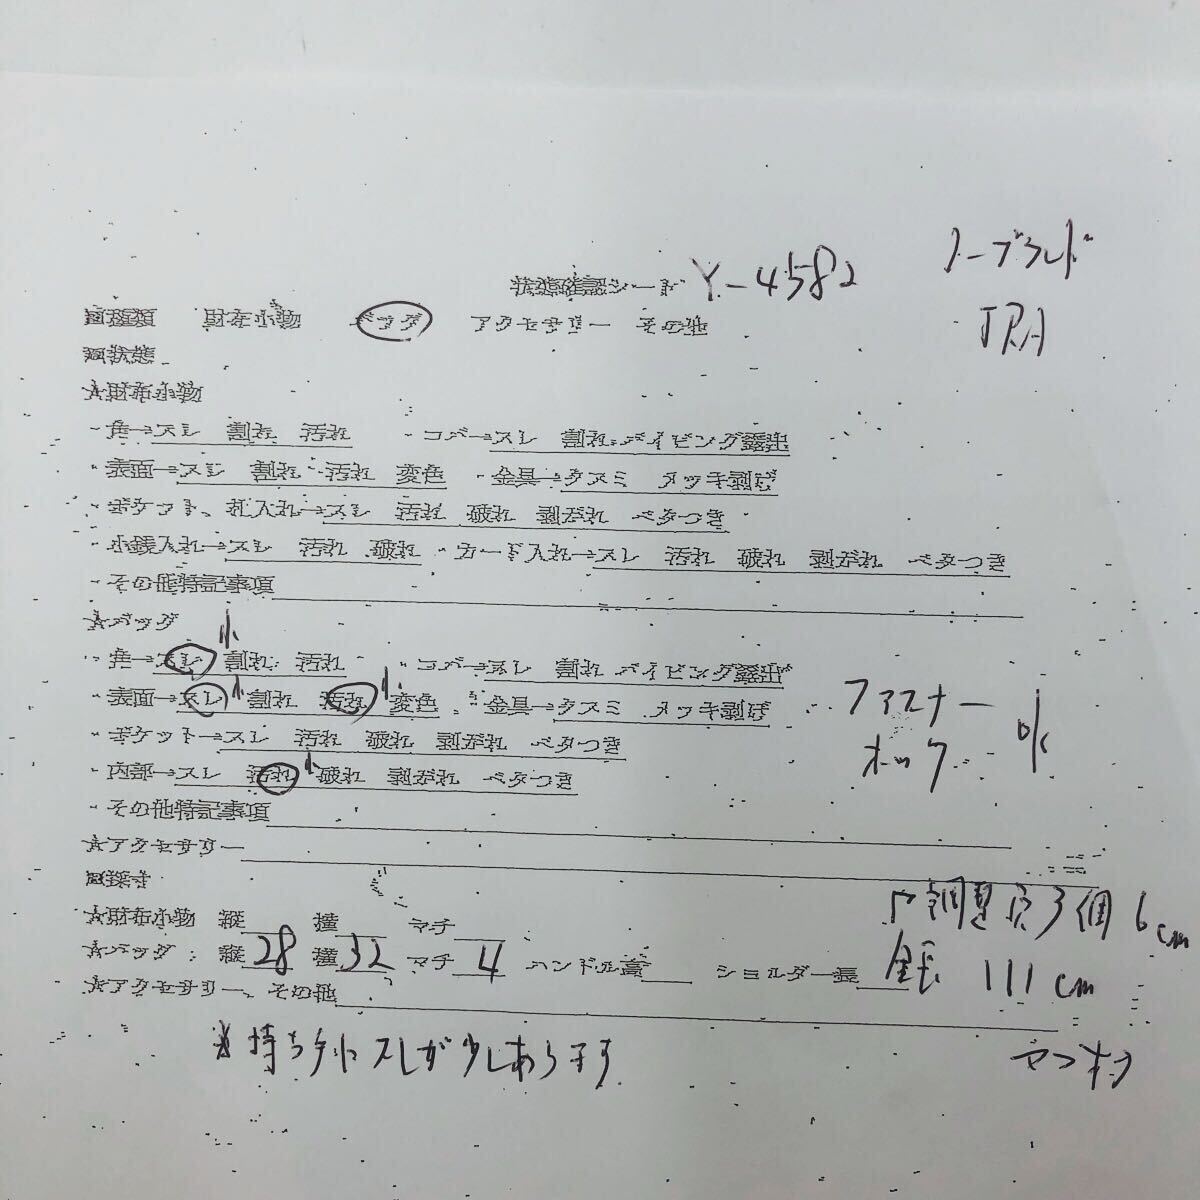 ノーブランド
状態確認シート Y-4582
JRA
□種類 財布小物 バッグ アクセサリー その他
□状態
★財布小物
・角→スレ 割れ 汚れ ・コバ→スレ 割れ パイピング露出
・表面→スレ 割れ 汚れ 変色 ・金具→クスミ メッキ剥げ
・ポケット、札入れ→スレ 汚れ 破れ 剥がれ ベタつき
・小銭入れ→スレ 汚れ 破れ ・カード入れ→スレ 汚れ 破れ 剥がれ ベタつき
・その他特記事項
★バッグ
・角→スレ 小 割れ 汚れ ・コバ→スレ 割れ パイピング露出
・表面→スレ 小 割れ 汚れ 小 変色 ・金具→クスミ メッキ剥げ
ファスナー
ok
・ポケット→スレ 汚れ 破れ 剥がれ ベタつき
ホック
・内部→スレ 汚れ 小 破れ 剥がれ ベタつき
・その他特記事項
★アクセサリー
□採寸
調整穴3個 6cm
★財布小物 縦 横 マチ
★バッグ: 縦 28 横 32 マチ 4 ハンドル高 ショルダー長 全長 111cm
★アクセサリー、その他
※持ち手にスレが少しあります